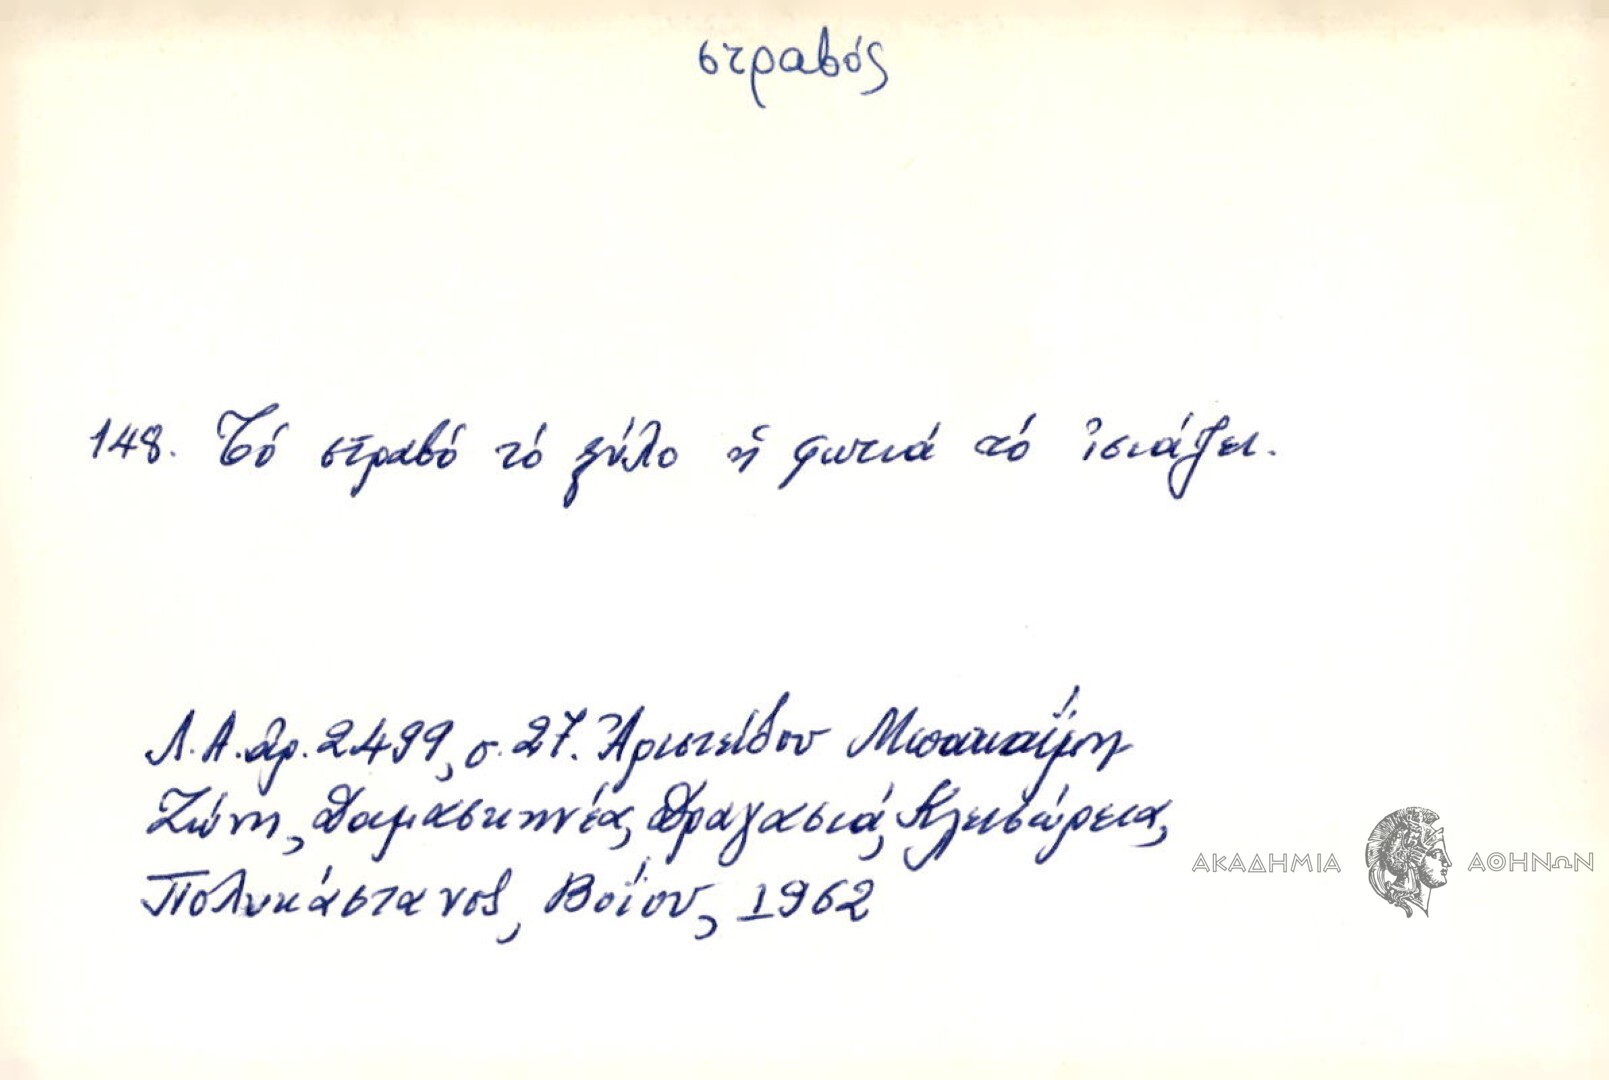 στραβός
148. Τό στραβό τό ξύλο ἡ φωτιά τό ἰσιάζει.
Λ.Α. ἀρ. 2499, σ. 27. Ἀριστείδου Μπακαΐμη
Ζώνη, Δαμασκηνέα, Δραγασιά, Κλεισώρεια,
Πολυκάστανος, Βοΐου, 1962
ΑΚΑΔΗΜΙΑ ΑΘΗΝΩΝ